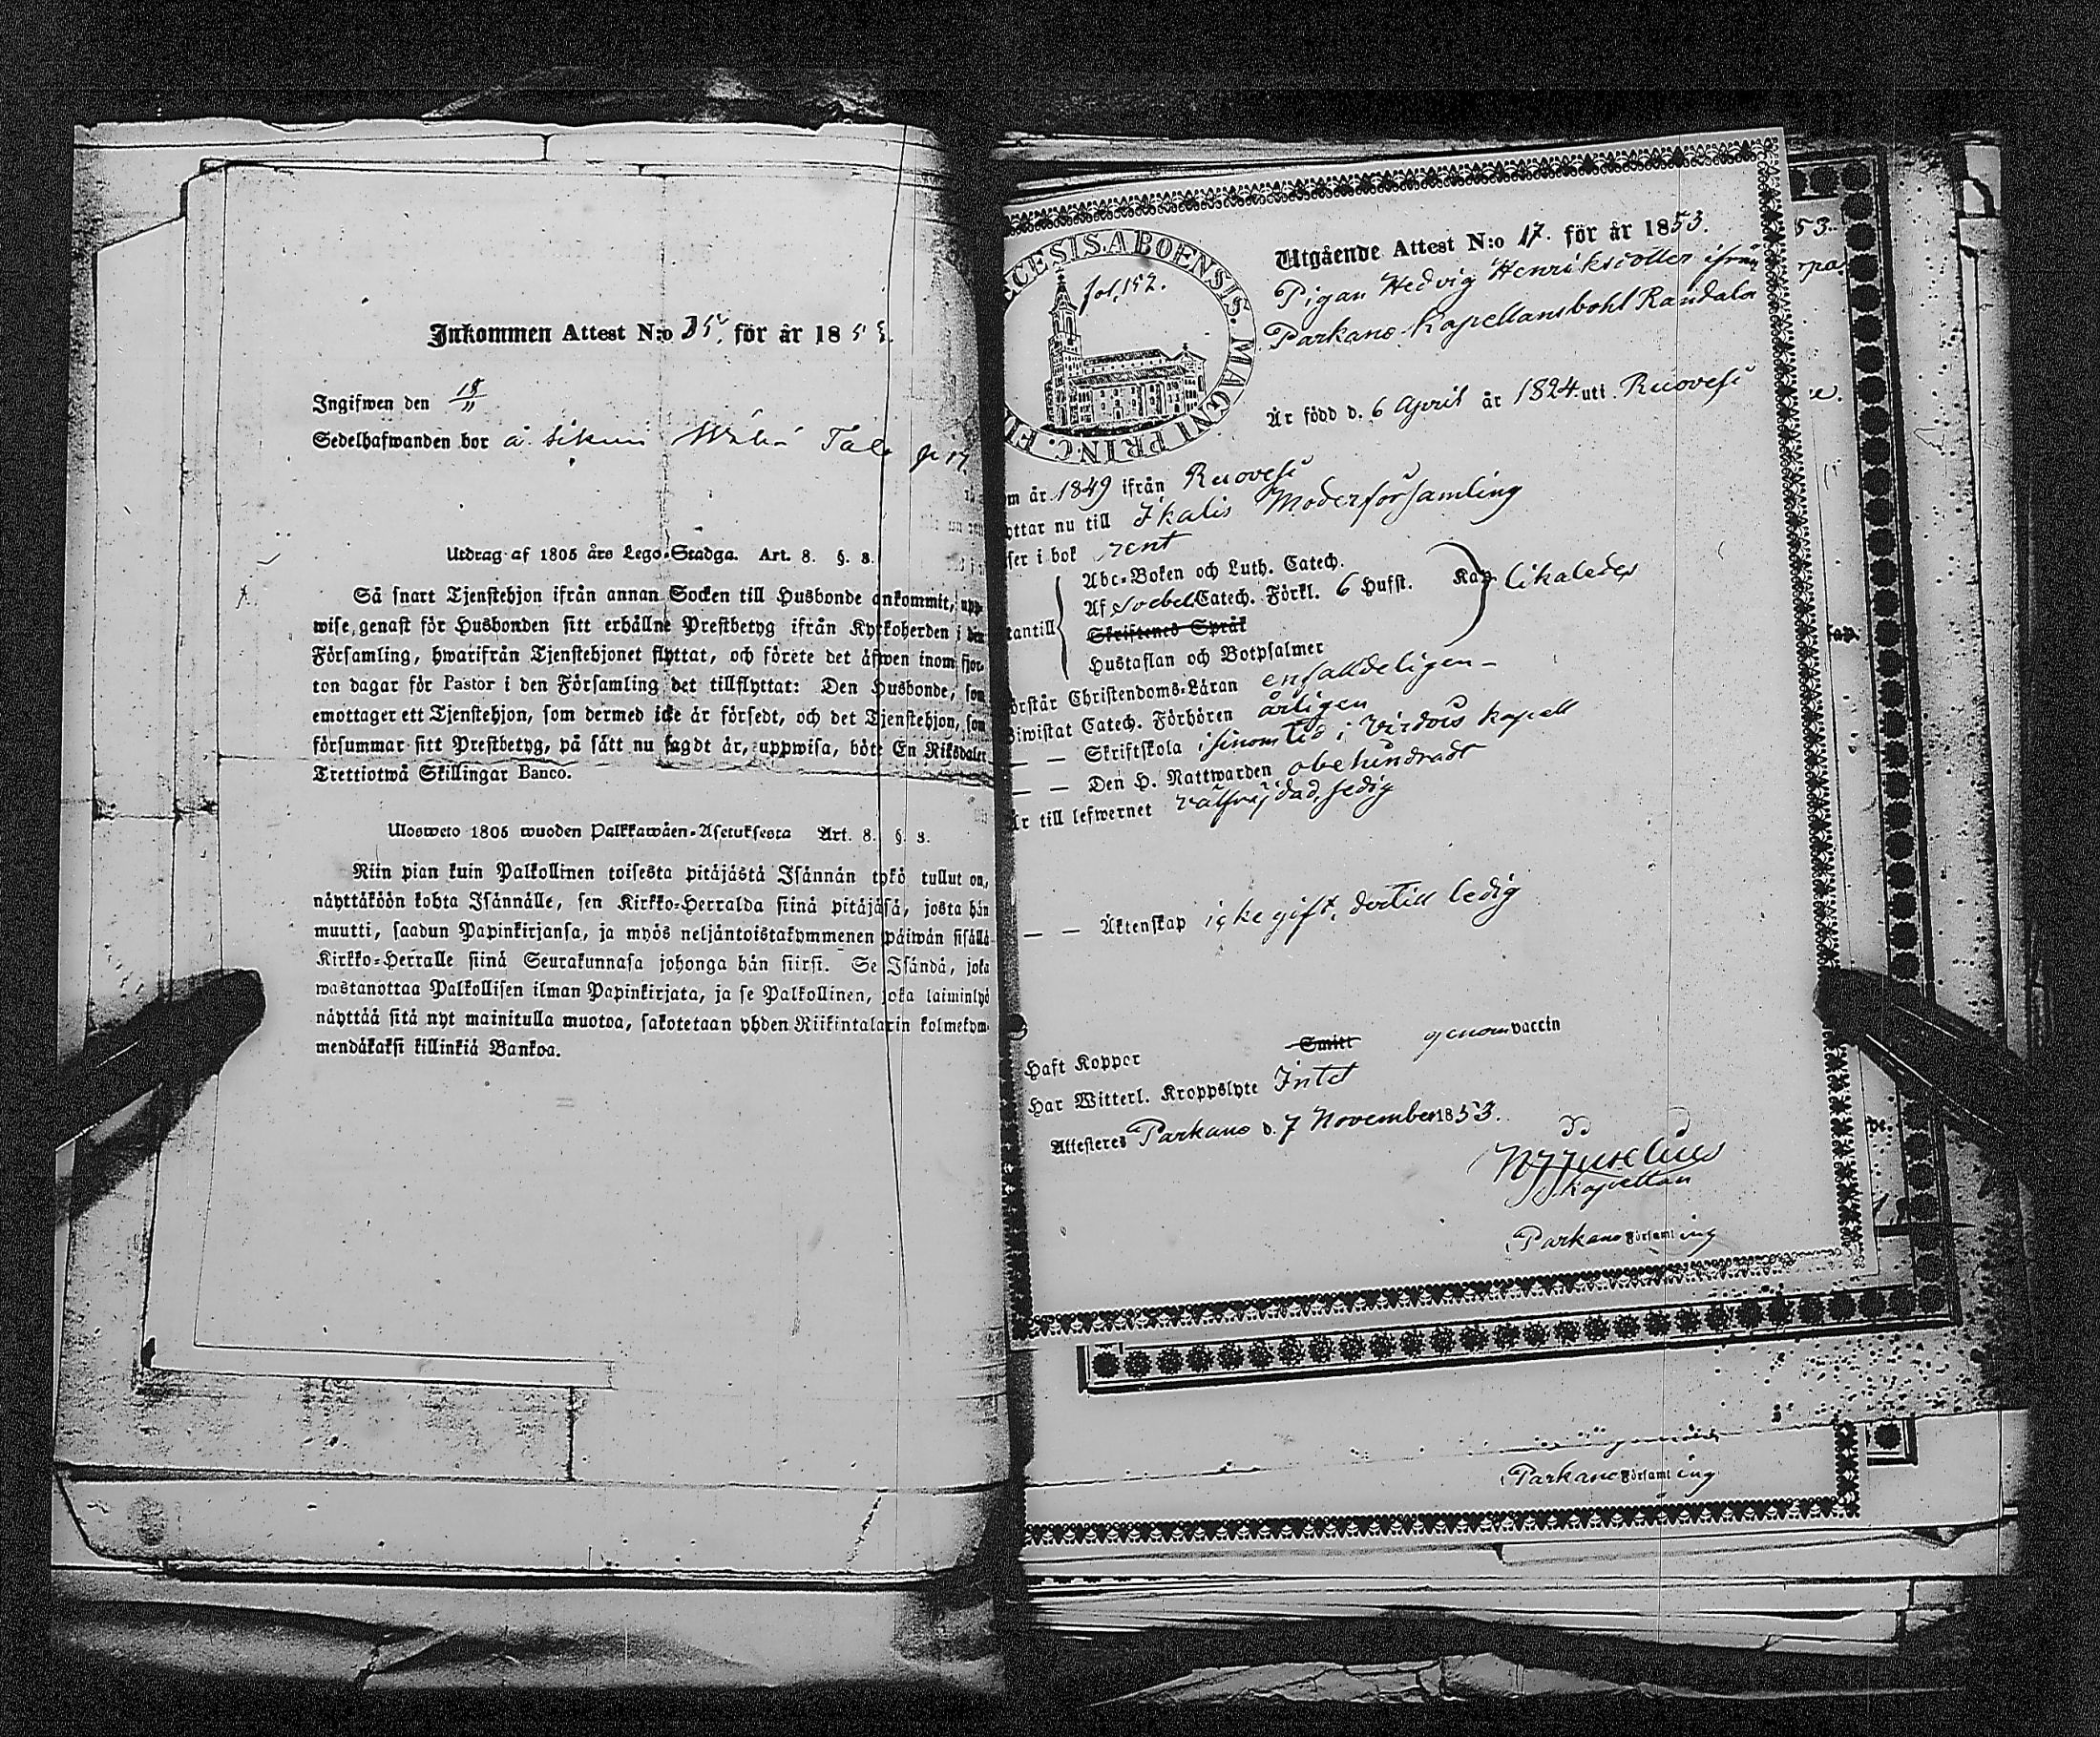 Inkommen Attest N:o 35. för år 1853.
Ingifwen den 18/11
Sedelhafwanden bor å
Utdrag af 1805 års Lego-Stadga. Art. 8. §. 8.
Så snart Tjenstehjon ifrån annan Socken till Husbonde ankommit, upp-
wise, genast för Husbonden sitt erhållne Prestbetyg ifrån Kyrkoherden i den
Församling, hwarifrån Tjenstehjonet flyttat, och förete det äfwen inom fjor-
ton dagar för Pastor i den Församling det tillflyttat: Den Husbonde, som
emottager ett Tjenstehjon, som dermed icke är försedt, och det Tjenstehjon, som
försummar sitt Prestbetyg, på sätt nu sagdt är, uppwisa, böte En Riksdaler
Trettiotwå Skillingar Banco.
Ulosweto 1805 wuoden Palkkawäen-Asetuksesta Art. 8. §. 8.
Niin pian kuin Palkollinen toisesta pitäjästä Isännän tykö tullut on,
näyttäköön kohta Isännälle, sen Kirkko-Herralda siinä pitäjäsä, josta hän
muutti, saadun Papinkirjansa, ja myös neljäntoistakymmenen päiwän sisällä
Kirkko-Herralle siinä Seurakunnasa johonga hän siirsi. Se Isändä, joka
wastanottaa Palkollisen ilman Papinkirjata, ja se Palkollinen, joka laiminlyö
näyttää sitä nyt mainitulla muotoa, sakotetaan yhden Riikintalarin kolmekym-
mendäkaksi killinkiä Bankoa.
ECESIS ABOENSIS. MAGNI PRINC. FI
fol. 152.
Utgående Attest N:o 17. för år 1853.
Pigan Hedvig Henriksdotter ifrån
Parkano Kapellansbohl Randala
Är född d. 6 April år 1824 uti Ruovesi
m år 1849 ifrån Ruovesi
ottar nu till Ikalis Moderförsamling
ser i bok rent
Abc-Boken och Luth. Catech.
Af Svebel. Catech. Förkl. 6 Hufst. Kap. likaledes
tantill
Skriftenes Språk
Hustaflan och Botpsalmer
örstår Christendoms-Läran enfalldeligen
Biwistat Catech. Förhören årligen
— — Skriftskola i sinom tid i Virdois kapell
— — Den H. Nattwarden obehindradt
Är till lefwernet välfrejdad, sedig
— — Äktenskap icke gift, dertill ledig
Haft Koppor Smitt genom vaccin
Har Witterl. Kroppslyte Intet
Attesteres Parkano d. 7 November 1853.
Kapellan
Parkano Församling
Parkano Församling